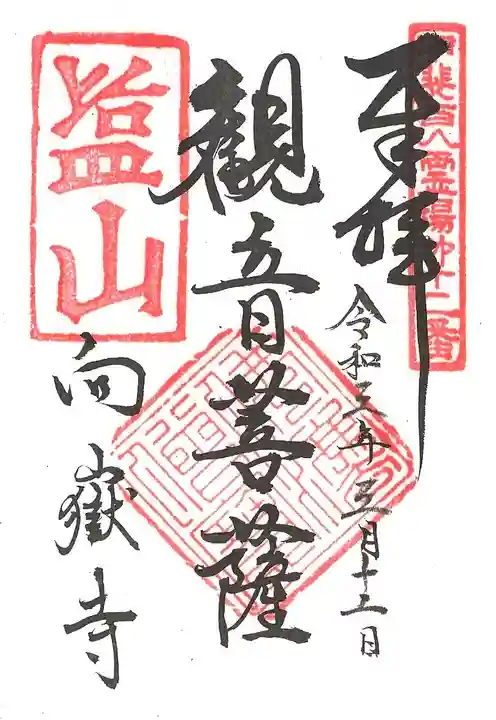 甲斐百八霊場第十二番
奉拝
令和三年三月十二日
觀音菩薩
塩山
向嶽寺